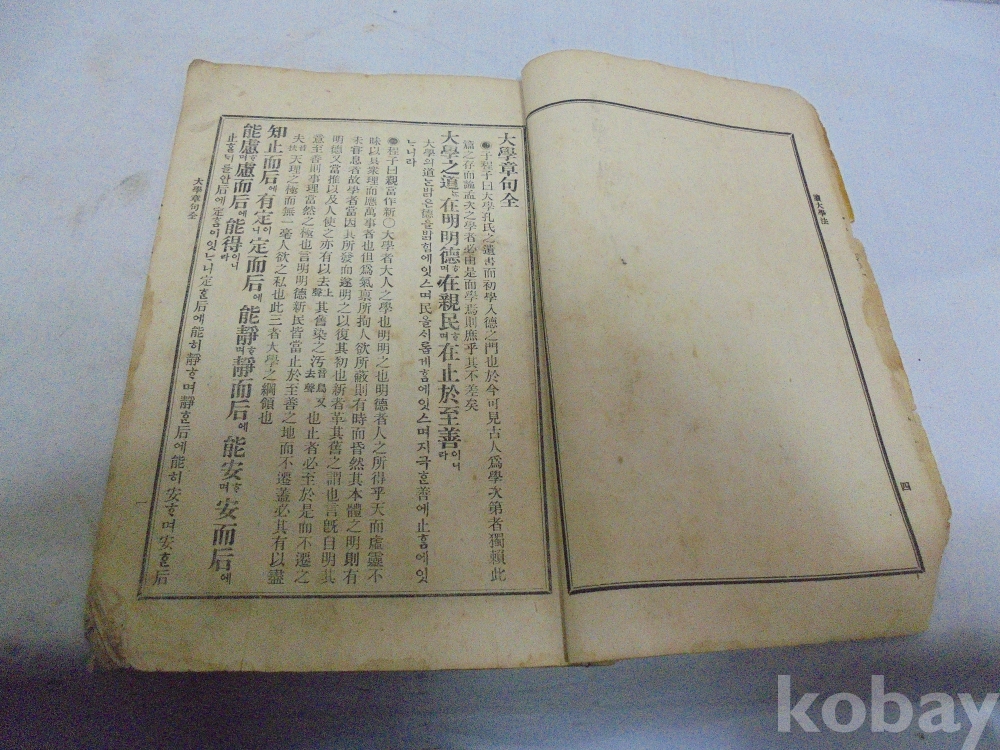 讀大學法
四
大學章句全
子程子曰大學孔氏之遺書而初學入德之門也於今可見古人爲學次第者獨賴此
篇之存而論孟次之學者必由是而學焉則庶乎其不差矣
大學之道는在明明德하며在親民하며在止於至善이니라
大學의道는밝은德을밝힘에잇스며民을시롭게홈에잇스며지극흔善에止홈에잇
느니라
程子曰親當作新○大學者大人之學也明明之也明德者人之所得乎天而虛靈不
昧以具衆理而應萬事者也但爲氣禀所拘人欲所蔽則有時而昏然其本體之明則有
未甞息者故學者當因其所發而遂明之以復其初也新者革其舊之謂也言旣自明其
明德又當推以及人使之亦有以去上聲其舊染之汚音烏又去聲也止者必至於是而不遷之
意至善則事理當然之極也言明明德新民皆當止於至善之地而不遷蓋必其有以盡
夫音扶天理之極而無一毫人欲之私也此三者大學之綱領也
知止而后에有定이니定而后에能靜하며靜而后에能安하며安而后에
能慮하며慮而后에能得이니라
止홈을안后에定홈이잇느니定흔后에能히靜하며靜흔后에能히安하며安흔后
大學章句全
一
kobay